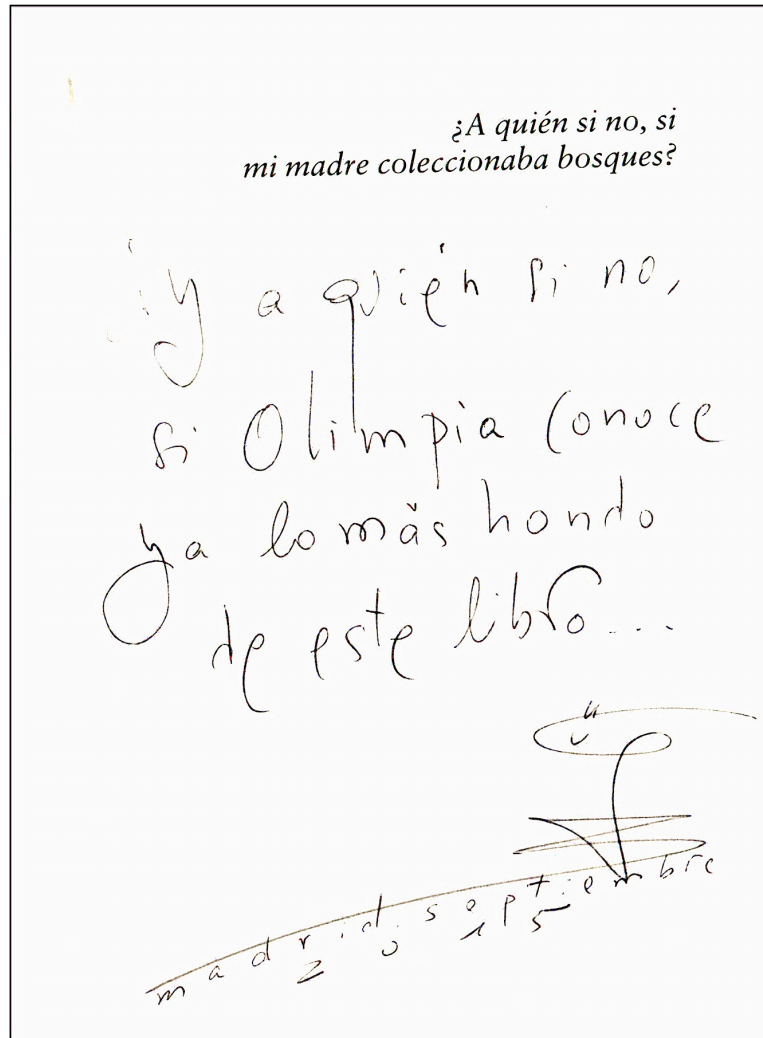 ¿A quién si no, si
mi madre coleccionaba bosques?
¿y a quién si no,
si Olimpia conoce
ya lo más hondo
de este libro...
madrid, septiembre
2015